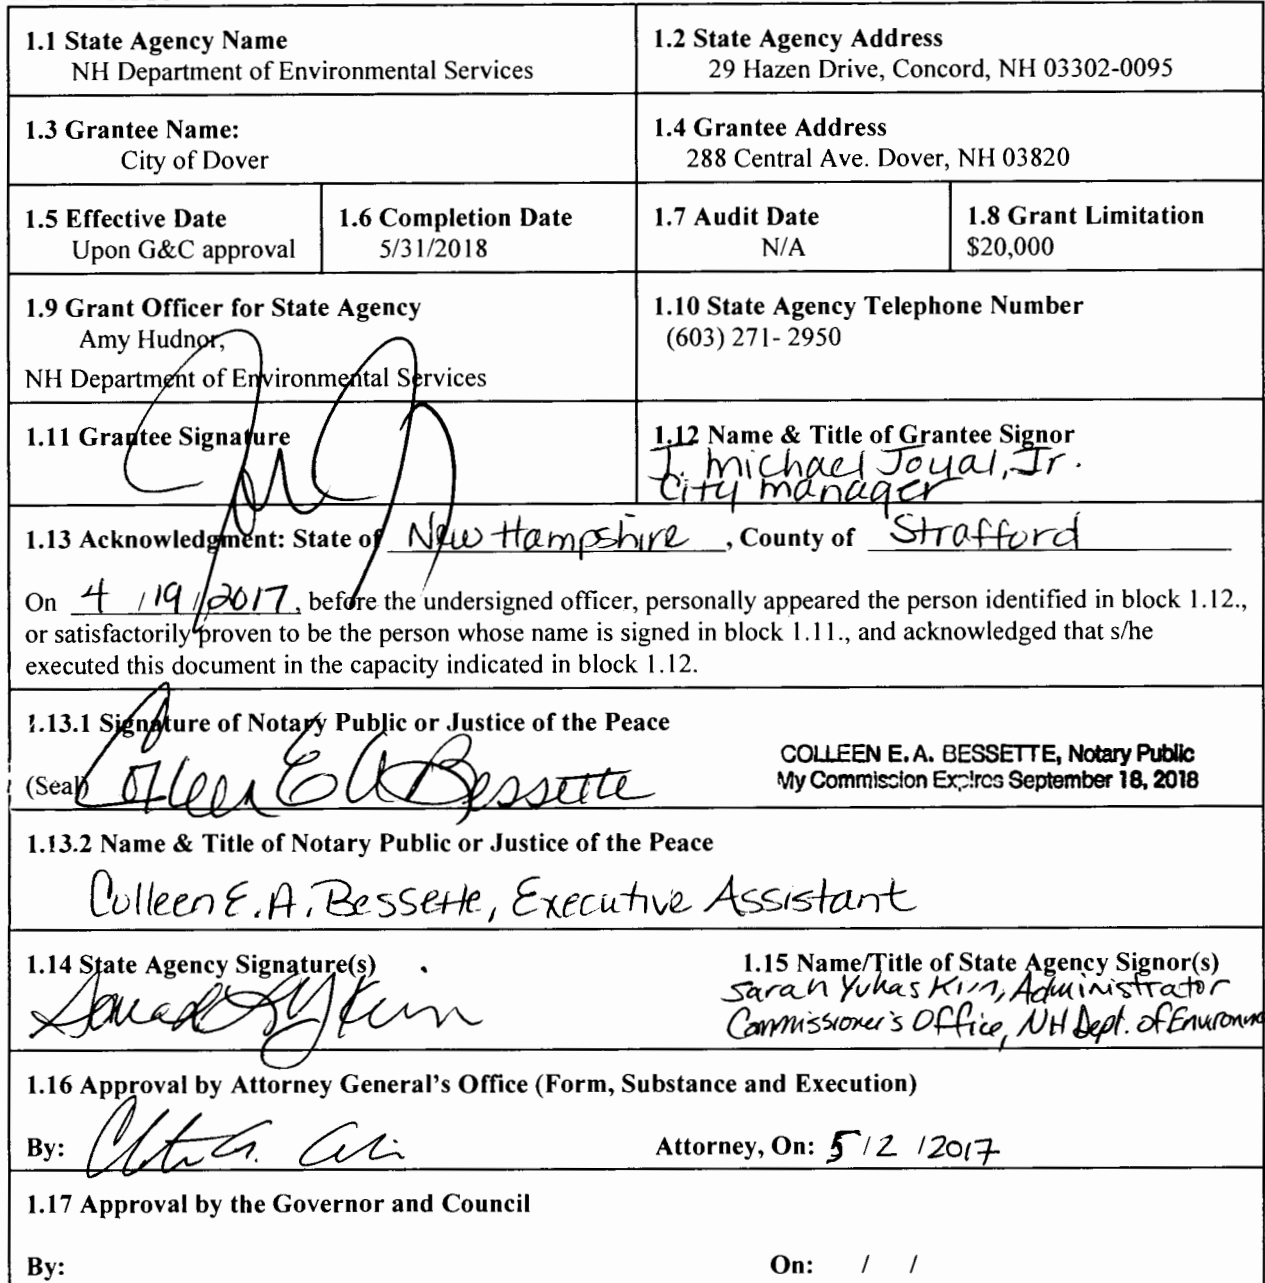 1.1 State Agency Name
NH Department of Environmental Services
1.2 State Agency Address
29 Hazen Drive, Concord, NH 03302-0095
1.3 Grantee Name:
City of Dover
1.4 Grantee Address
288 Central Ave. Dover, NH 03820
1.5 Effective Date
Upon G&C approval
1.6 Completion Date
5/31/2018
1.7 Audit Date
N/A
1.8 Grant Limitation
$20,000
1.9 Grant Officer for State Agency
Amy Hudnor,
NH Department of Environmental Services
1.10 State Agency Telephone Number
(603) 271- 2950
1.11 Grantee Signature
1.12 Name & Title of Grantee Signor
J. Michael Joyal, Jr.
City Manager
1.13 Acknowledgment: State of New Hampshire, County of Strafford
On 4/19/2017, before the undersigned officer, personally appeared the person identified in block 1.12.,
or satisfactorily proven to be the person whose name is signed in block 1.11., and acknowledged that s/he
executed this document in the capacity indicated in block 1.12.
1.13.1 Signature of Notary Public or Justice of the Peace
(Seal) Colleen E A Bessette
COLLEEN E. A. BESSETTE, Notary Public
My Commission Expires September 18, 2018
1.13.2 Name & Title of Notary Public or Justice of the Peace
Colleen E.A. Bessette, Executive Assistant
1.14 State Agency Signature(s)
1.15 Name/Title of State Agency Signor(s)
Sarah Yuhas Kirn, Administrator
Commissioner's Office, NH Dept. of Environme
1.16 Approval by Attorney General's Office (Form, Substance and Execution)
By:
Attorney, On: 5/2/2017
1.17 Approval by the Governor and Council
By:
On: / /